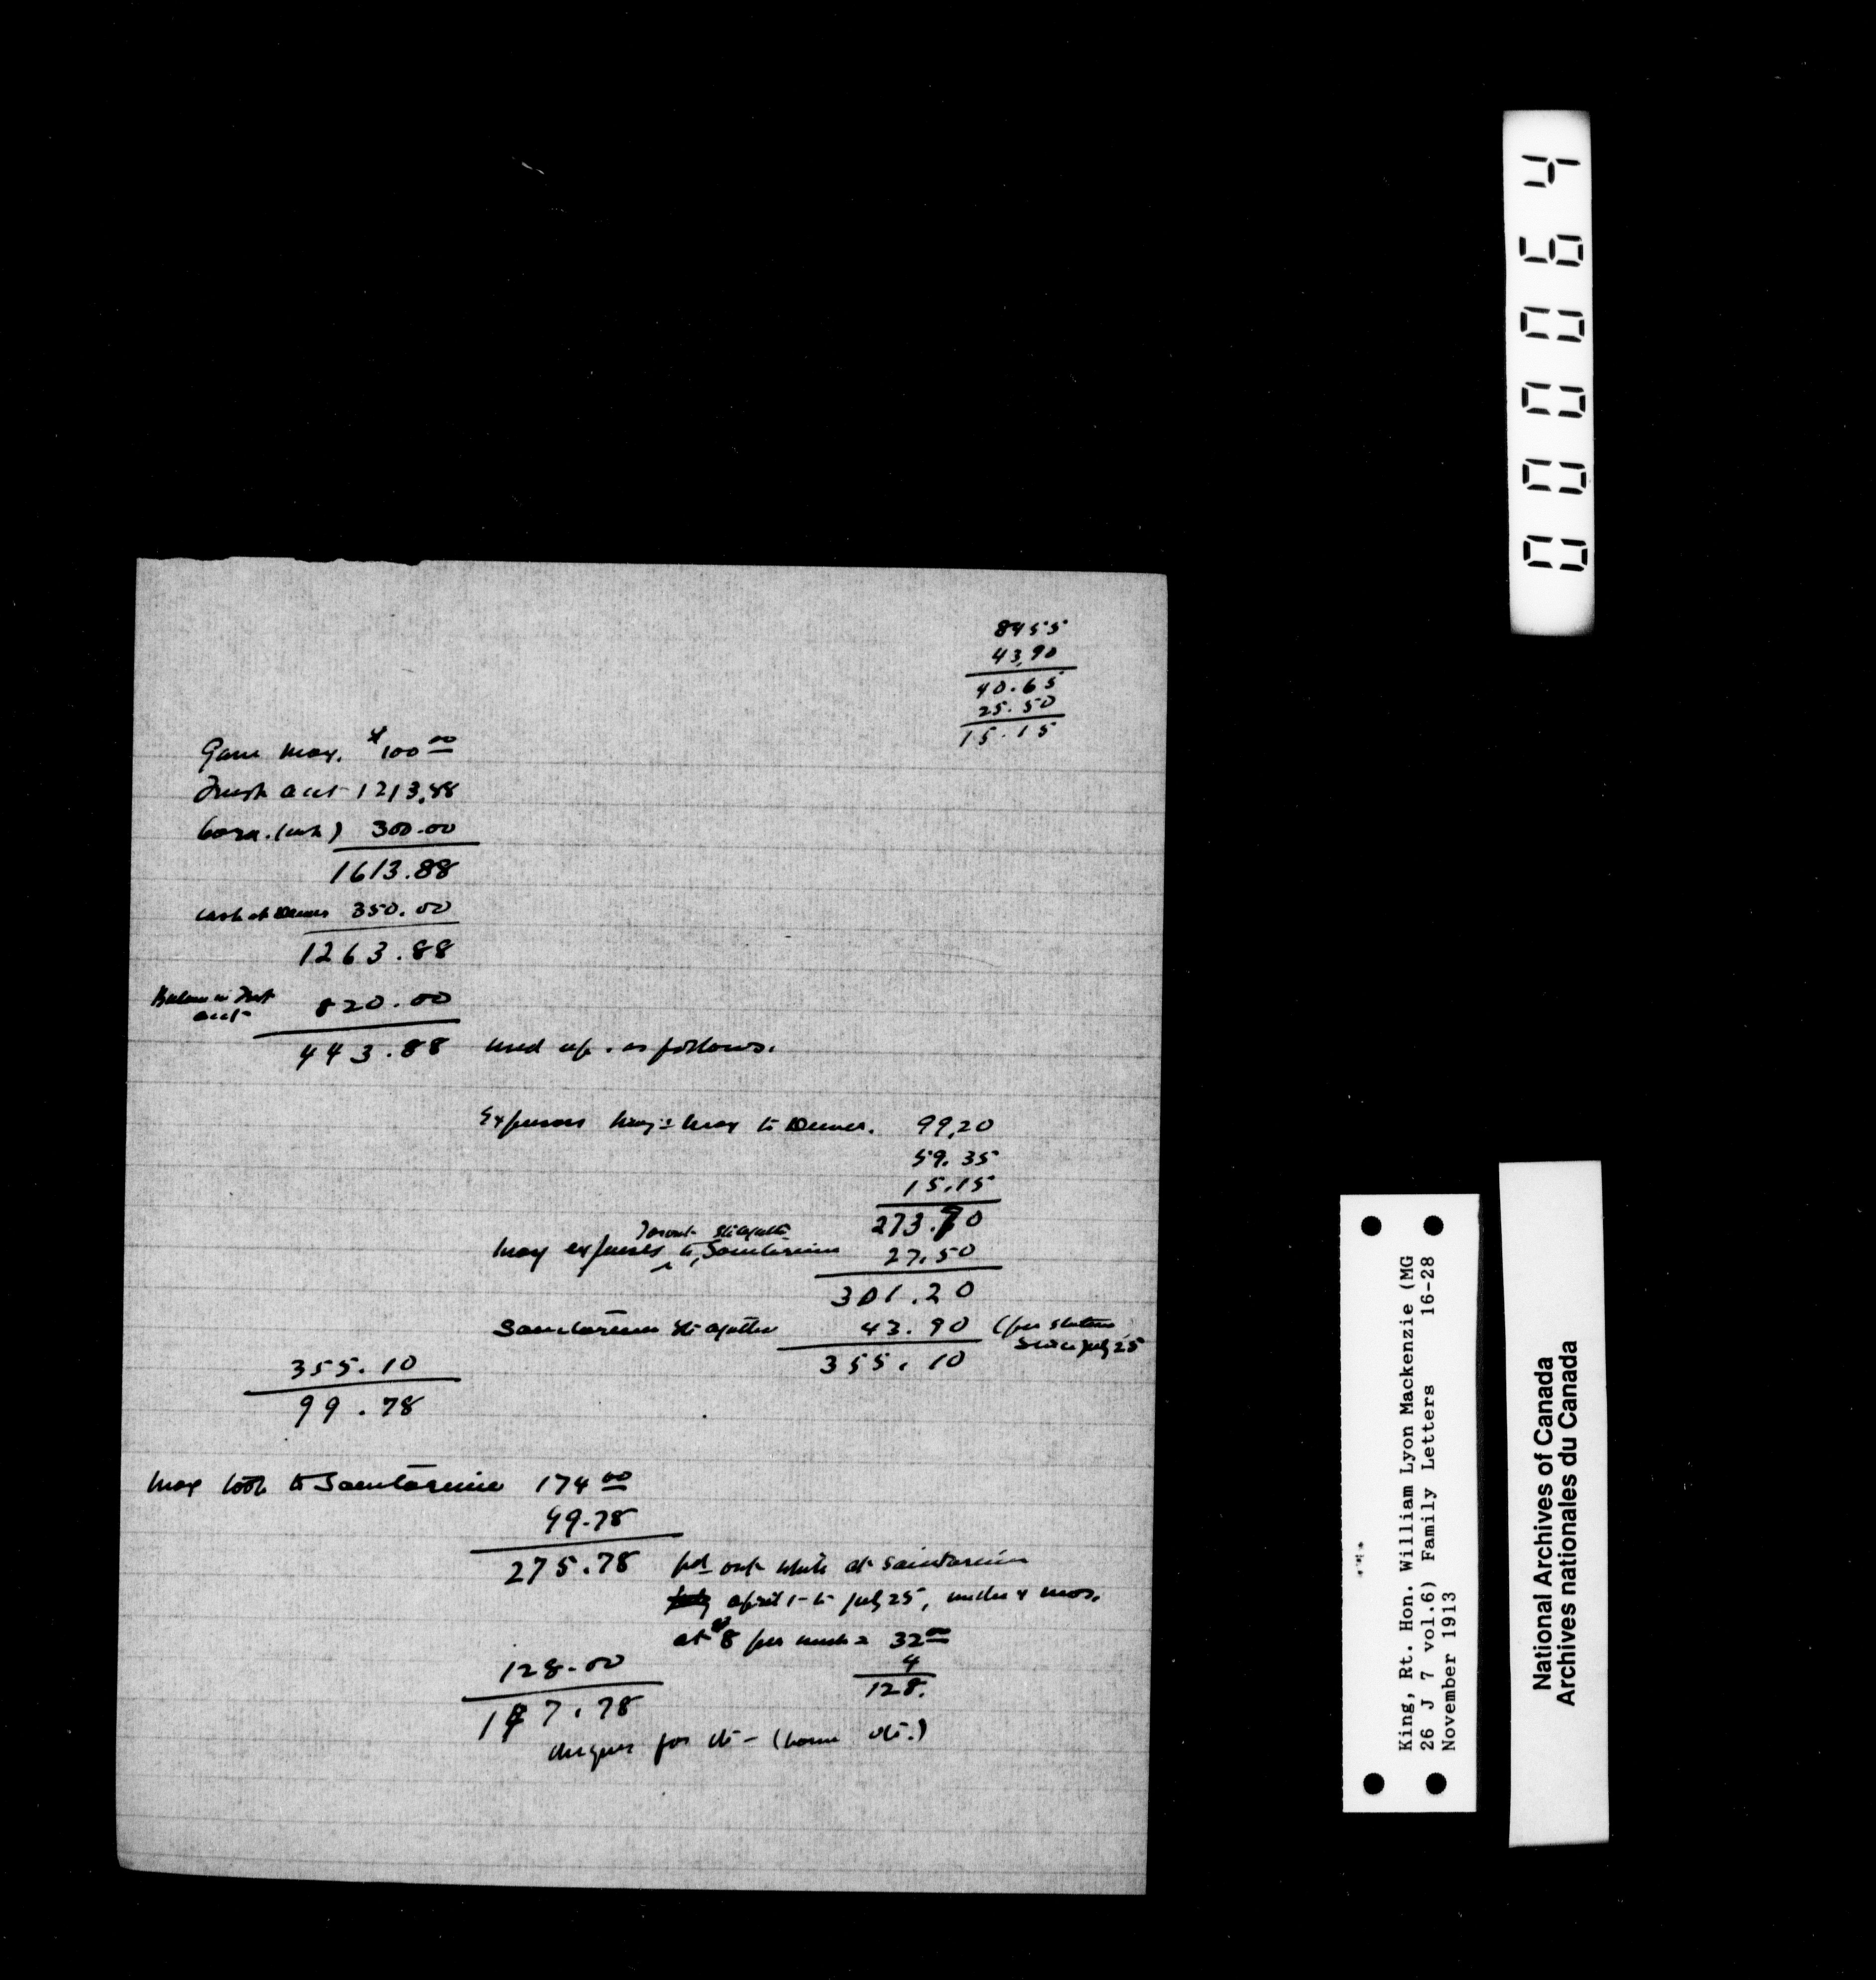 84 55
43,90
40.65
25.50
15.15
Gave Max. $100 00
Trust acct 1213,88
300.00
1613.88
Cash at Denver 350.00
1263.88
Balance in Trust
acct
820.00
443.88 used up. as follows.
Expenses Max to Denver. 99,20
59.35
15.15
273.70
Toronto Ste Agathe
Max expenses to Sanitarium 27.50
301.20
Sanitarium Ste Agathe 43.90 (per statem
since July 25
355.10
355.10
99.78
Max took to Sanitarium 174 00
99.78
275.78 pd out while at Sanitarium
July april 1 - to July 25, under 4 mos.
at $8 per week = 32 00
4
128.
128.00
147.78
cheques for do - (home do.)
000064
King, Rt. Hon. William Lyon Mackenzie (MG
26 J 7 vol.6) Family Letters 16-28
November 1913
National Archives of Canada
Archives nationales du Canada